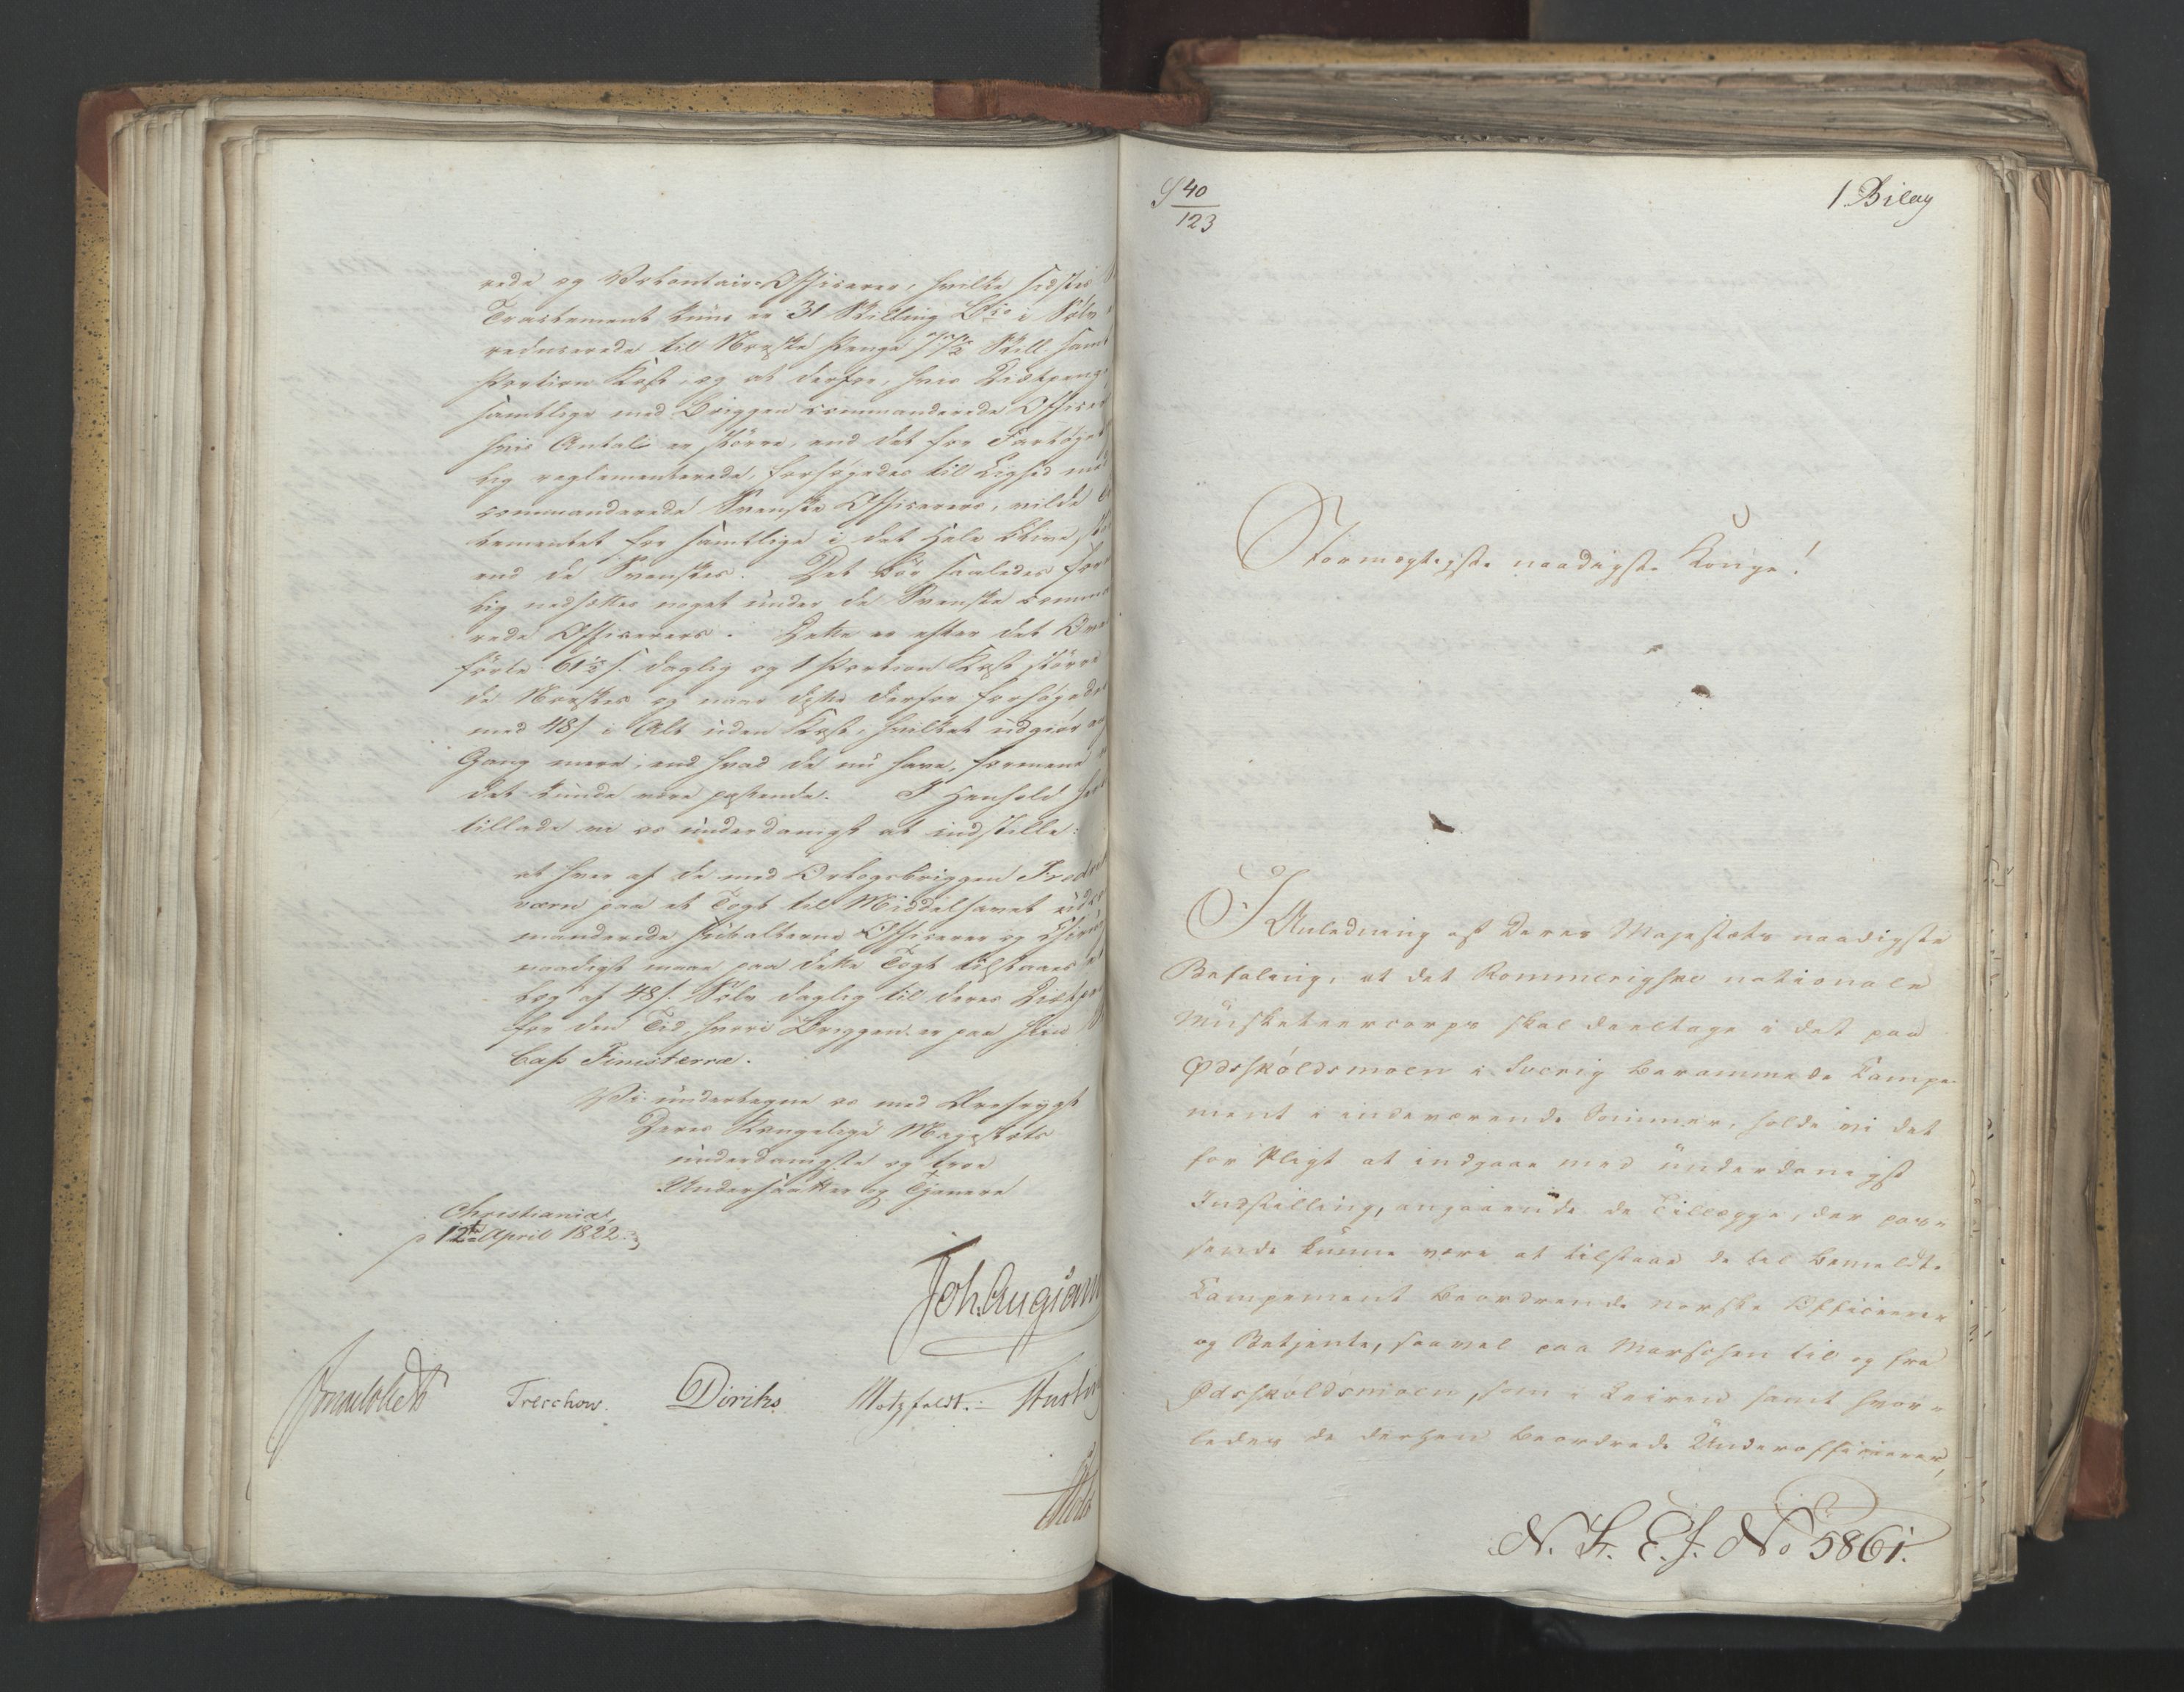 rede og Volontaire Officerer, hvilke sidstes
Tractement kun er 31 Skilling Bco i Sölv
reducerede til Norske Penge Skill. samt
Portion Kost, og at derfor, hvis Diætpenge
samtlige med Briggen commanderede Officer
hvis Antal er större, end det for Fartøiet
lig reglementerede, forhøgedes til Lighed med
commanderede Svenske Officerers, vilde
tementet for samtlige i det Hele blive
end de Svenskes. Det bör saaledes
lig nedsættes noget under de Svenske comman
rede Officerers. Dette er efter det Oven
förte 61½ s. daglig og 1 Portion Kost större
de Norskes og naar disse derfor forhøgedes
med 48 s. i Alt uden Kost, hvilket udgiør
Gang mere, end hvad de nu have, formene
det kunde være passende. I Henhold
tillade vi os underdanigst at indstille:
at hver af de med Orlogsbriggen Fredriks
værn paa et Togt til Middelhavet udcom
manderede subalterne Officerer og
naadigst maae paa dette Togt tilstaaes et
læg af 48 s. Sölv daglig til deres Diætpenge
for den Tid, hvori Briggen er paa hin
Cap Finisterræ.
Vi undertegne os med Ærefrygt
Deres Kongelige Majestæts
underdanigste og troe
Undersaatter og Tjenere
Christiania,
12te April 1822.
Joh. Aug. San
Sommelhielm Treschow. Diriks Motzfeldt.
Holst
S 40/123
1 Bilag
Stormægtigste naadigste Konge!
I Anledning af Deres Majestæts naadigste
Befaling, at det Rommerigske nationale
Musketeercorps skal deeltage i det paa
Ødsköldsmoen i Sverig berammede Campe-
ment i indeværende Sommer, holde vi det
for Pligt at indgaae med underdanigst
Indstilling, angaaende de Tillægge, der pas-
sende kunne være at tilstaae de til bemeldte
Campement beordrende norske Officerer
og Betjente, saavel paa Marschen til og fra
Ødsköldsmoen, som i Leiren samt hvor-
ledes de derhen beordrede Underofficerer,
N. S. E. J. No 5861.